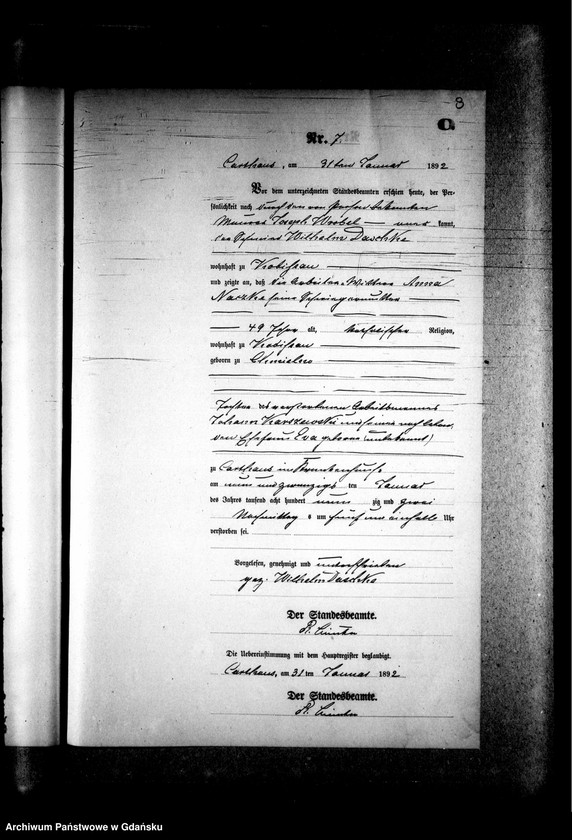 8
C.
Nr. 7.
Carthaus, am 31ten Januar 1892
Vor dem unterzeichneten Standesbeamten erschien heute, der Per-
sönlichkeit nach durch den von Person bekannten
Maurer Joseph Wrobel — anerkannt,
der Wilhelm Daschke
wohnhaft zu
und zeigte an, daß die Arbeiter-Wittwe Anna
Naczke seine Schwiegermutter
49 Jahre alt, katholischer Religion,
wohnhaft zu
geboren zu Chmielno
Tochter des verstorbenen Arbeitsmannes
Johann Karszewski und seiner
Ehefrau Eva geborne (unbekannt)
zu Carthaus im Krankenhause
am neun und zwanzigs ten Januar
des Jahres tausend acht hundert neun zig und zwei
Nachmittag s um fünf und einhalb Uhr
verstorben sei.
Vorgelesen, genehmigt und unterschrieben
gez. Wilhelm Daschke
Der Standesbeamte.
Die Uebereinstimmung mit dem Hauptregister beglaubigt.
Carthaus, am 31 ten Januar 1892
Der Standesbeamte.
Archiwum Państwowe w Gdańsku